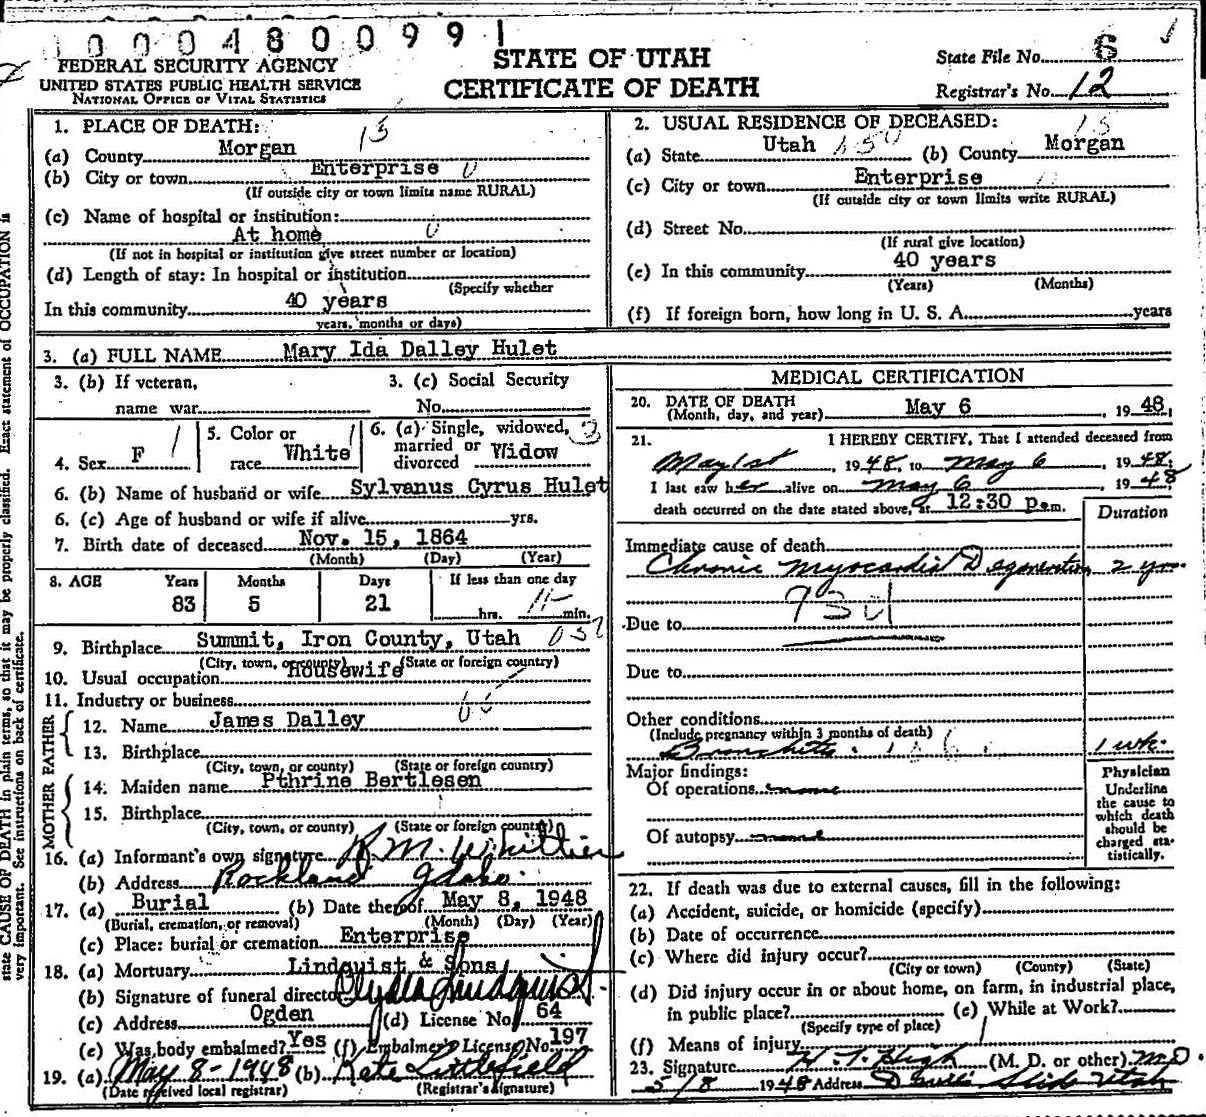 1000480099 1
FEDERAL SECURITY AGENCY
UNITED STATES PUBLIC HEALTH SERVICE
NATIONAL OFFICE OF VITAL STATISTICS
STATE OF UTAH
CERTIFICATE OF DEATH
State File No. 6
Registrar's No. 12
1. PLACE OF DEATH: 15
(a) County Morgan
(b) City or town Enterprise 0
(If outside city or town limits name RURAL)
(c) Name of hospital or institution:
At home 0
(If not in hospital or institution give street number or location)
(d) Length of stay: In hospital or institution
(Specify whether
In this community 40 years
years, months or days)
2. USUAL RESIDENCE OF DECEASED: 15
(a) State Utah (b) County Morgan
(c) City or town Enterprise
(If outside city or town limits write RURAL)
(d) Street No.
(If rural give location)
(e) In this community 40 years
(Years) (Months)
(f) If foreign born, how long in U. S. A. years
3. (a) FULL NAME Mary Ida Dalley Hulet
3. (b) If veteran, 3. (c) Social Security
name war No.
4. Sex F 1
5. Color or race White 1
6. (a) Single, widowed, 3
married or
divorced Widow
6. (b) Name of husband or wife Sylvanus Cyrus Hulet
6. (c) Age of husband or wife if alive yrs.
7. Birth date of deceased Nov. 15, 1864
(Month) (Day) (Year)
8. AGE Years Months Days If less than one day
83 5 21 hrs. min.
9. Birthplace Summit, Iron County, Utah
(City, town, or county) (State or foreign country)
10. Usual occupation Housewife
11. Industry or business
FATHER
12. Name James Dalley
13. Birthplace
(City, town, or county) (State or foreign country)
MOTHER
14. Maiden name Pthrine Bertlesen
15. Birthplace
(City, town, or county) (State or foreign country)
16. (a) Informant's own signature R M. Whittier
(b) Address Rockland Idaho.
17. (a) Burial (b) Date thereof May 8, 1948
(Burial, cremation, or removal) (Month) (Day) (Year)
(c) Place: burial or cremation Enterprise
18. (a) Mortuary Lindquist & Sons
(b) Signature of funeral director Clyde Lindquist
(c) Address Ogden (d) License No. 64
(e) Was body embalmed? Yes (f) Embalmer's License No. 197
19. (a) May 8-1948 (b) Kate Littlefield
(Date received local registrar) (Registrar's signature)
MEDICAL CERTIFICATION
20. DATE OF DEATH
(Month, day, and year) May 6, 1948.
21. I HEREBY CERTIFY, That I attended deceased from
May 1st, 1948, to May 6, 1948.
I last saw her alive on May 6 1948
death occurred on the date stated above, at 12:30 p.m.
Duration
Immediate cause of death
Chronic Myocardial Degeneration 2 yrs.
Due to
Due to
Other conditions
(Include pregnancy within 3 months of death)
Bronchitis. 1 wk.
Major findings:
Of operations none
Of autopsy none
Physician
Underline
the cause to
which death
should be
charged sta-
tistically.
22. If death was due to external causes, fill in the following:
(a) Accident, suicide, or homicide (specify)
(b) Date of occurrence
(c) Where did injury occur?
(City or town) (County) (State)
(d) Did injury occur in or about home, on farm, in industrial place,
in public place? (e) While at Work?
(Specify type of place)
(f) Means of injury
23. Signature H. T. High (M. D. or other) M.D.
5/8 1948 Address Devil's Slide Utah
state CAUSE OF DEATH in plain terms, so that it may be properly classified. Exact statement of OCCUPATION is
very important. See instructions on back of certificate.